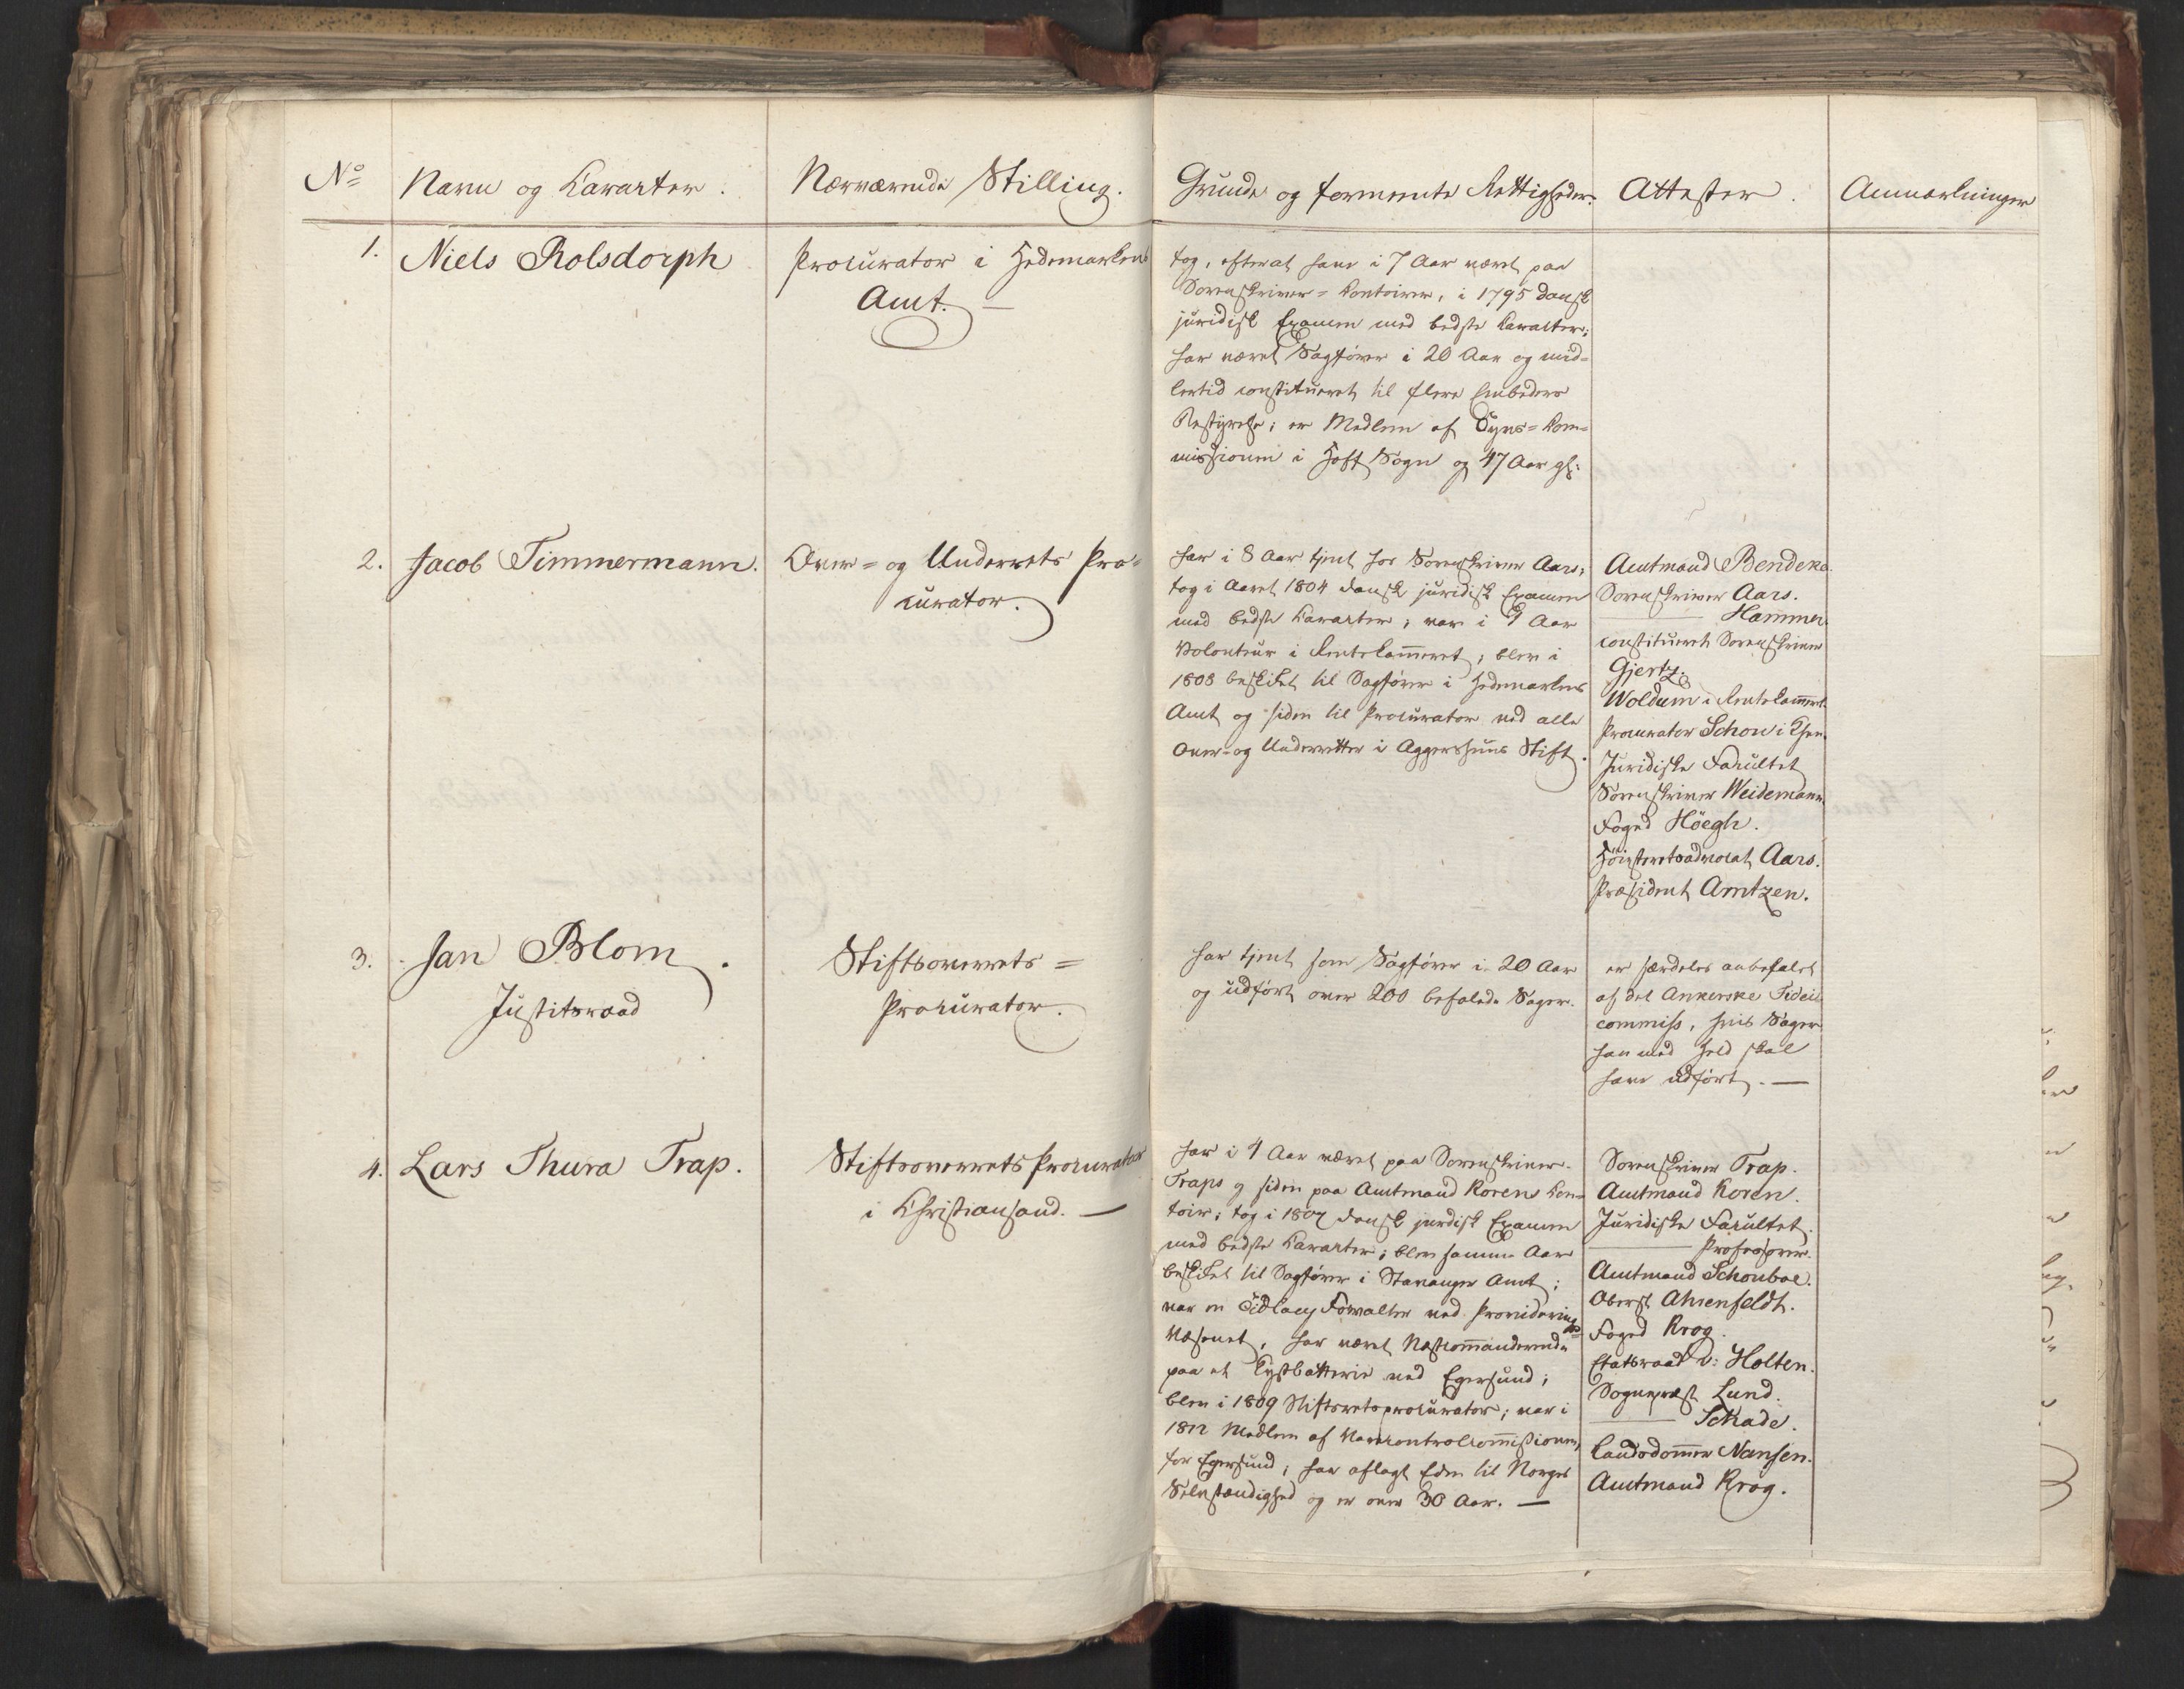 No
Navn og Karakter.
Nærværende Stilling.
Grunde og formeente Rettigheder.
Attester.
Anmærkninger
1.
Niels Rolsdorph
Procurator i Hedemarkens
Amt. —
tog, efterat have i 7 Aar været paa
Sorenskriver-Contoirer, i 1795 dansk
juridisk Examen med bedste Karakter;
har været Sagfører i 20 Aar og imid-
lertid constitueret til flere Embeders
Bestyrelse; er Medlem af Kom-
missionen i Hoff Sogn og 47 Aar gl:
2.
Jacob Timmermann.
Over- og Underrets Pro-
curator.
har i 8 Aar tjent hos Sorenskriver Aars;
tog i Aaret 1804 dansk juridisk Examen
med bedste Karakter; var i Aar
Volonteur i Rentekammeret; blev i
1808 beskiket til Sagfører i Hedemarkens
Amt og siden til Procurator ved alle
Over- og Underretter i Aggershuus Stift.
Amtmand Bendeke.
Sorenskriver Aars.
——— Hammer.
constitueret Sorenskriver
Gjertz.
Woldum i Rentekammeret.
Procurator Schow i Chra.
Juridiske Facultet
Sorenskriver Weidemann.
Foged Höegh.
Höiesteretsadvocat Aars.
Præsident Arntzen.
3.
Jan Blom.
Justitsraad
Stiftsoverrets-
Procurator.
har tjent som Sagfører i 20 Aar
og udført over 200 befalede Sager.
er særdeles anbefalet
af det Ankerske Fidei
commiss, hvis Sager
han med Held skal
have udført. —
4.
Lars Thura Trap.
Stiftsoverrets Procurator
i Christiansand. —
har i 4 Aar været paa Sorenskriver
Traps og siden paa Amtmand Korens Con-
toir; tog i 1807 dansk juridisk Examen
med bedste Karakter; blev samme Aar
beskiket til Sagfører i Stavanger Amt;
var en Forvalter ved Providerings
Væsenet, har været Næstcommanderende
paa et Kystbatterie ved Egersund;
blev i 1809 Stiftsretsprocurator; var i
1812 Medlem af
for Egersund; har aflagt Eden til Norges
Selvstændighed og er over 30 Aar. —
Sorenskriver Trap.
Amtmand Koren.
Juridiske Facultet.
——— Professorer.
Amtmand Schouboe.
Oberst Ahrenfeldt.
Foged Krog.
Etatsraad v: Holten.
Sognepræst Lund.
——— Schade.
Landsdommer Nansen.
Amtmand Krog.